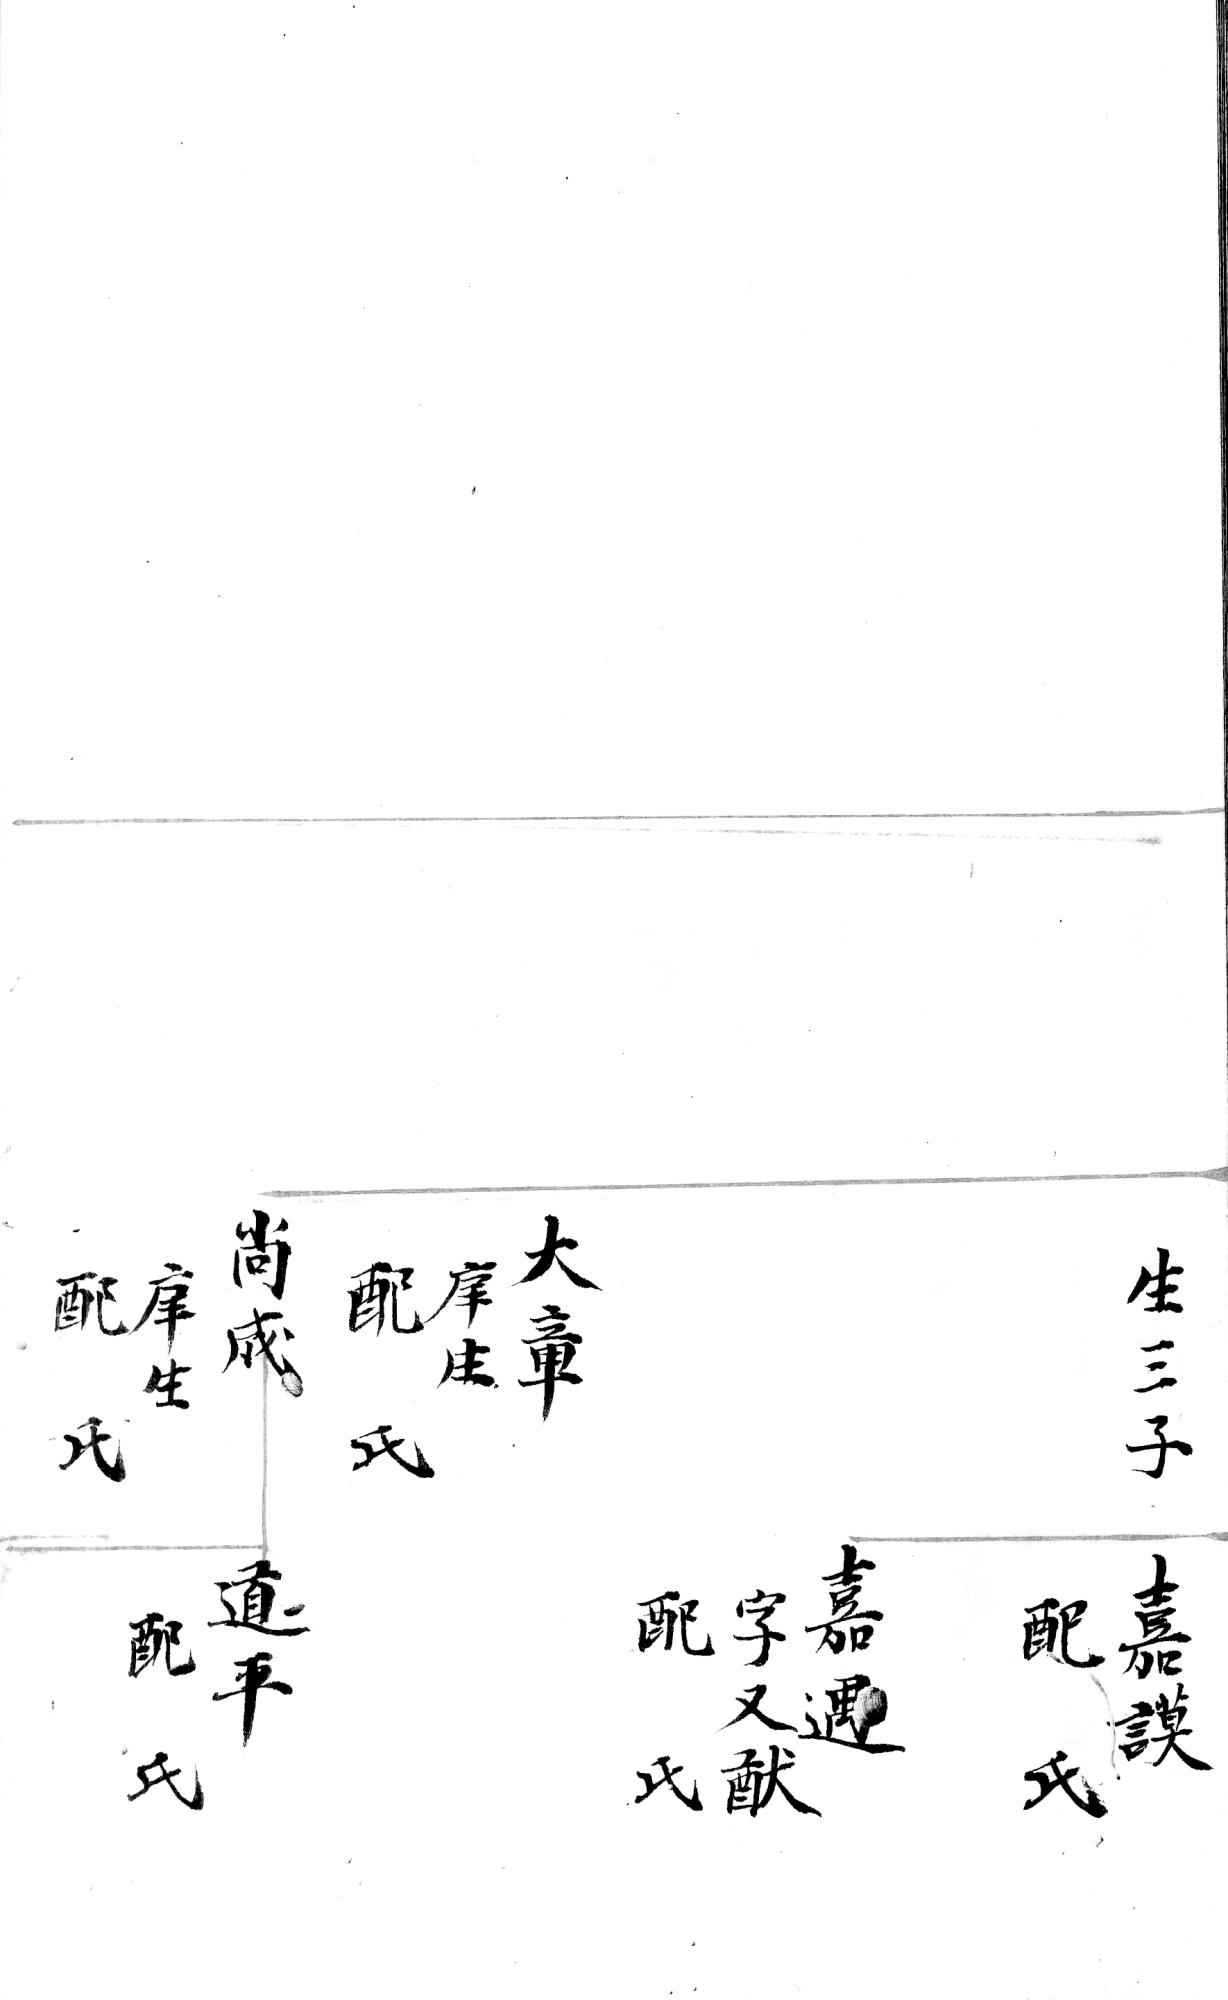 生三子
大章
庠生
配 氏
尚成
庠生
配 氏
嘉謨
配 氏
嘉遇
字又猷
配 氏
道平
配 氏